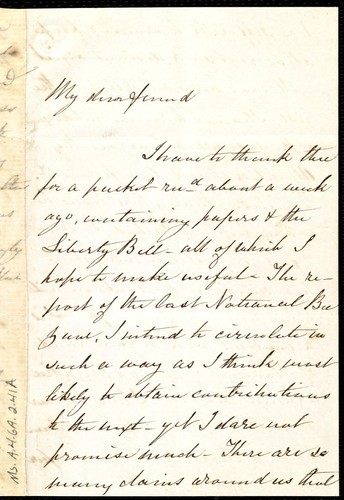 My dear friend
I have to thank thee
for a packet recd about a week
ago, containing papers & the
Liberty Bell - all of which I
hope to make useful - The re-
port of the last National Ba
zaar, I intend to circulate in
such a way as I think most
likely to obtain contributions
to the next - yet I dare not
promise much - There are so
many claims around us that
Ms. A. 4. 6A. 2. 41A